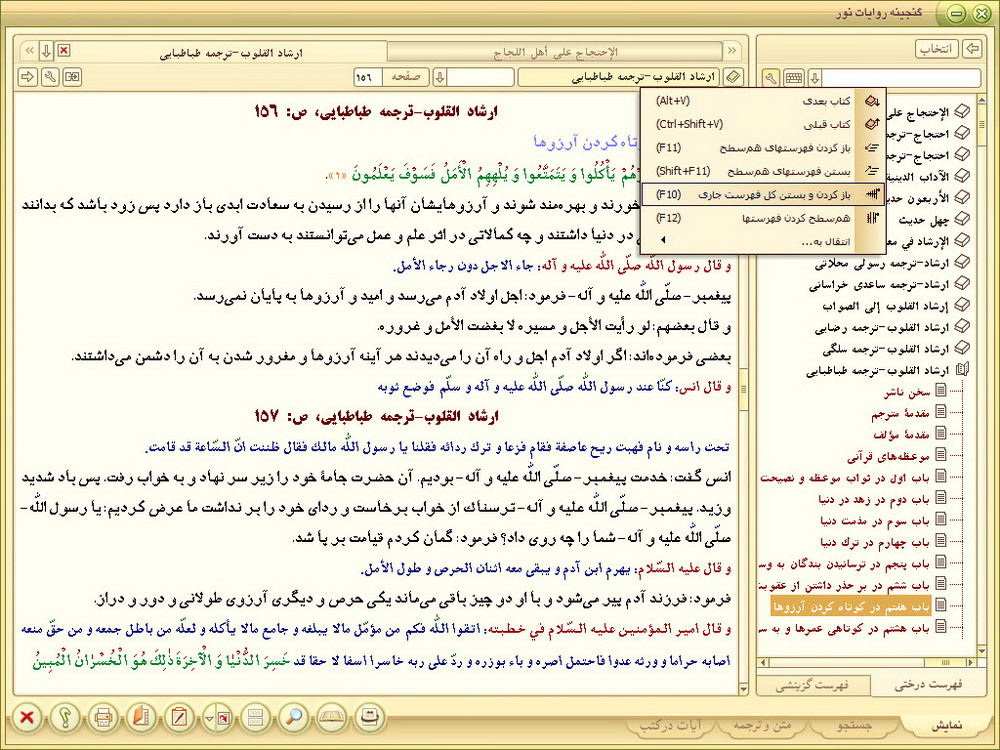 گنجینه روایات نور
انتخاب
الإحتجاج على أهل اللجاج
ارشاد القلوب-ترجمه طباطبایی
ارشاد القلوب-ترجمه طباطبایی
صفحه
١٥٦
کتاب بعدی (Alt+V)
کتاب قبلی (Ctrl+Shift+V)
باز کردن فهرستهای هم‌سطح (F11)
بستن فهرستهای هم‌سطح (Shift+F11)
باز کردن و بستن کل فهرست جاری (F10)
هم‌سطح کردن فهرستها (F12)
انتقال به...
الإحتجاج علی
احتجاج-ترجم
احتجاج-ترجم
الآداب الدینیة
الأربعون حدی
چهل حدیث
الإرشاد في مع
ارشاد-ترجمه رسولی محلاتی
ارشاد-ترجمه ساعدی خراسانی
إرشاد القلوب إلی الصواب
ارشاد القلوب-ترجمه رضایی
ارشاد القلوب-ترجمه سلگی
ارشاد القلوب-ترجمه طباطبایی
سخن ناشر
مقدمهٔ مترجم
مقدمهٔ مؤلف
موعظه‌های قرآنی
باب اول در ثواب موعظه و نصیحت
باب دوم در زهد در دنیا
باب سوم در مذمت دنیا
باب چهارم در ترک دنیا
باب پنجم در ترسانیدن بندگان به وس
باب ششم در بر حذر داشتن از عقوبت
باب هفتم در کوتاه کردن آرزوها
باب هشتم در کوتاهی عمرها و به سر
فهرست درختی
فهرست گزینشی
ارشاد القلوب-ترجمه طباطبایی، ص: ١٥٦
تاه کردن آرزوها
هُمْ يَأْكُلُوا وَ يَتَمَتَّعُوا وَ يُلْهِهِمُ الْأَمَلُ فَسَوْفَ يَعْلَمُونَ «١».
خورند و بهره‌مند شوند و آرزوهایشان آنها را از رسیدن به سعادت ابدی باز دارد پس زود باشد که بدانند
در دنیا داشتند و چه کمالاتی در اثر علم و عمل می‌توانستند به دست آورند.
و قال رسول اللَّه صلّى اللَّه عليه و آله: جاء الاجل دون رجاء الأمل.
پیغمبر-صلّی اللَّه علیه و آله-فرمود: اجل اولاد آدم می‌رسد و امید و آرزوها به پایان نمی‌رسد.
و قال بعضهم: لو رأيت الأجل و مسيره لا بغضت الأمل و غروره.
بعضی فرموده‌اند: اگر اولاد آدم اجل و راه آن را می‌دیدند هر آینه آرزوها و مغرور شدن به آن را دشمن می‌داشتند.
و قال انس: كنّا عند رسول اللَّه صلّى اللَّه عليه و آله و سلّم فوضع ثوبه
ارشاد القلوب-ترجمه طباطبایی، ص: ١٥٧
تحت راسه و نام فهبت ريح عاصفة فقام فزعا و ترك ردائه فقلنا يا رسول اللَّه مالك فقال ظننت انّ السّاعة قد قامت.
انس گفت: خدمت پیغمبر-صلّی اللَّه علیه و آله-بودیم. آن حضرت جامهٔ خود را زیر سر نهاد و به خواب رفت. پس باد شدید
وزید. پیغمبر-صلّی اللَّه علیه و آله-ترسناک از خواب برخاست و ردای خود را بر نداشت ما عرض کردیم: یا رسول اللَّه-
صلّی اللَّه علیه و آله-شما را چه روی داد؟ فرمود: گمان کردم قیامت بر پا شد.
و قال عليه السّلام: يهرم ابن آدم و يبقى معه اثنان الحرص و طول الأمل.
فرمود: فرزند آدم پیر می‌شود و با او دو چیز باقی می‌ماند یکی حرص و دیگری آرزوی طولانی و دور و دراز.
و قال امير المؤمنين عليه السّلام في خطبته: اتقوا اللَّه فكم من مؤمّل مالا يبلغه و جامع مالا يأكله و لعلّه من باطل جمعه و من حقّ منعه
اصابه حراما و ورثه عدوا فاحتمل اصره و باء بوزره و ردّ على ربه خاسرا اسفا لا حقا قد خَسِرَ الدُّنْيا وَ الْآخِرَةَ ذلِكَ هُوَ الْخُسْرانُ الْمُبِينُ
نمایش
جستجو
متن و ترجمه
آیات در کتب